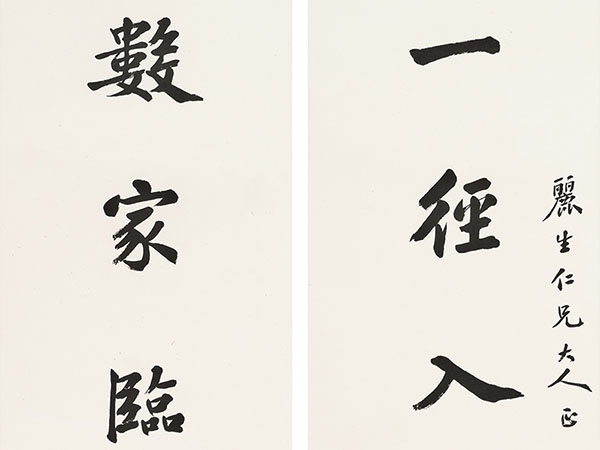 麗生仁兄大人正
一徑入
數家臨